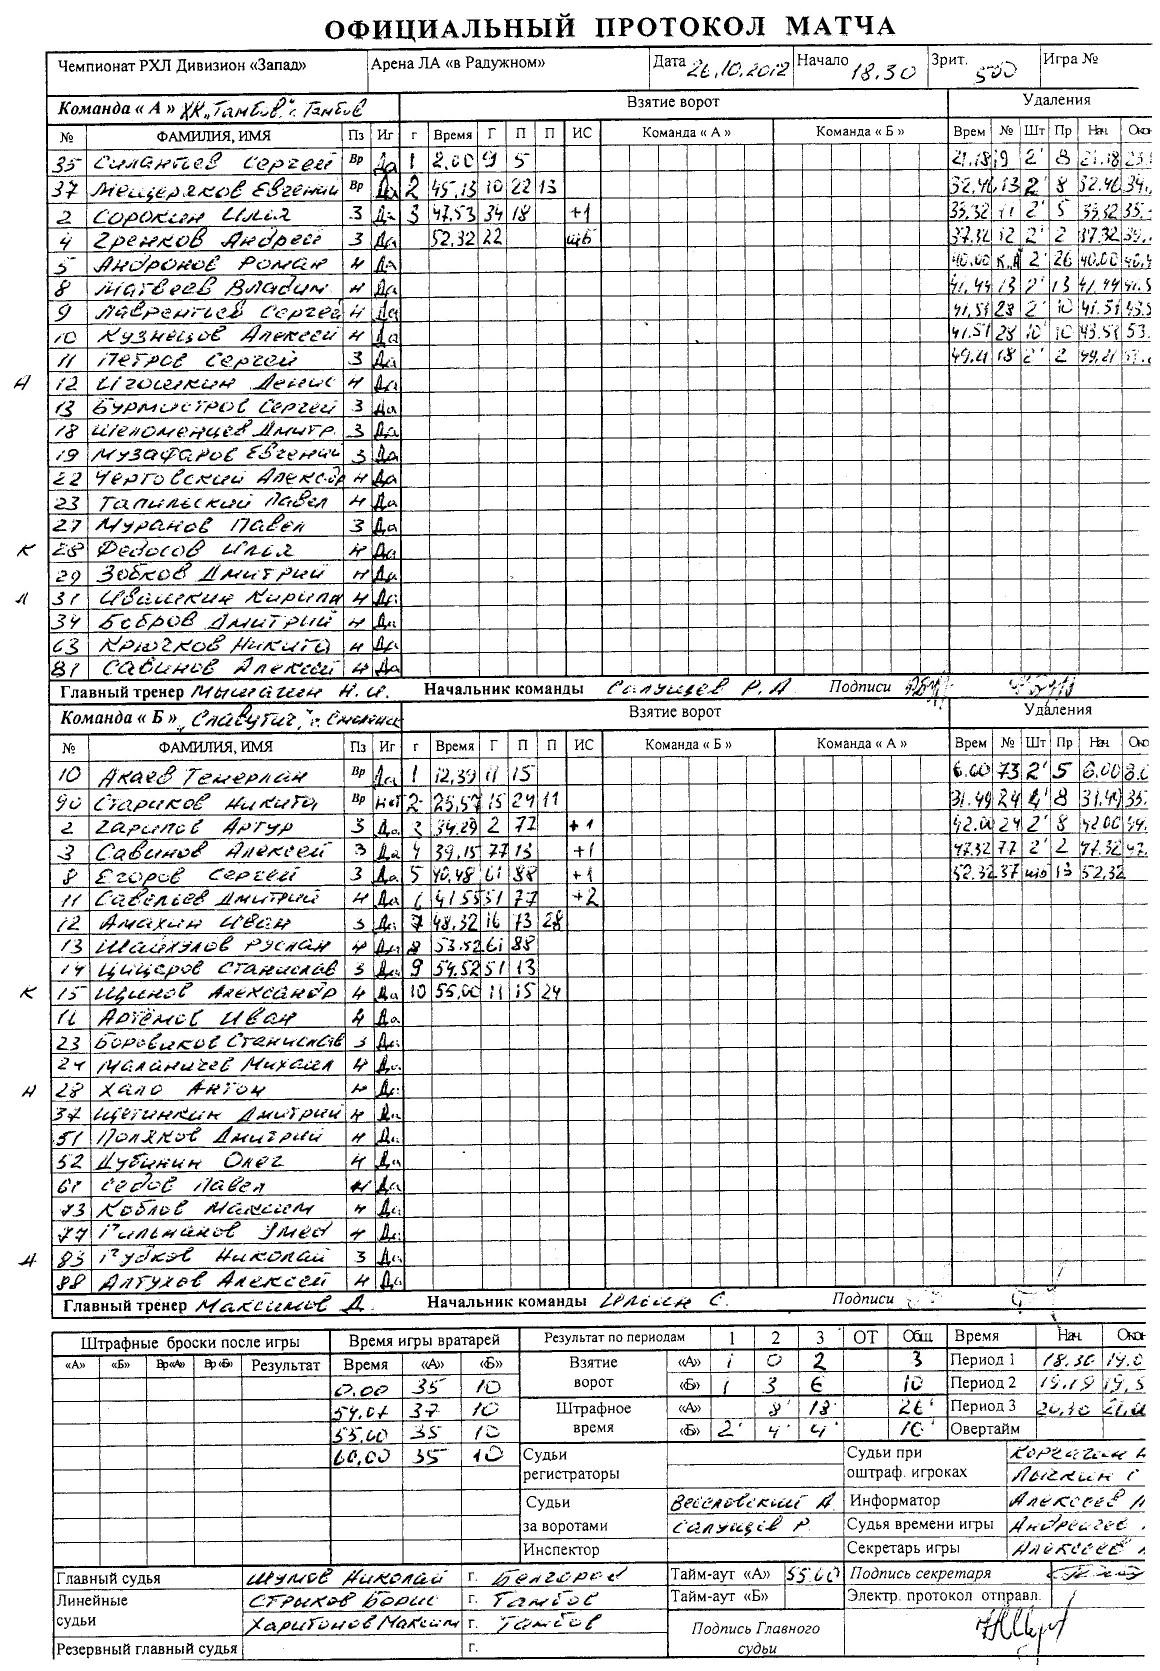 ОФИЦИАЛЬНЫЙ ПРОТОКОЛ МАТЧА
Чемпионат РХЛ Дивизион «Запад» Арена ЛА «в Радужном» Дата 26.10.2012 Начало 18.30 Зрит. 500 Игра №
Команда « А » ХК „Тамбов" г. Тамбов Взятие ворот Удаления
№ ФАМИЛИЯ, ИМЯ Пз Иг г Время Г П П ИС Команда « А » Команда « Б » Врем № Шт Пр Нач. Окон
35 Силантьев Сергей Вр Да 1 2.00 9 5 21.18 19 2' 8 21.18
37 Мещеряков Евгений Вр Да 2 45.13 10 22 13 32.46 13 2' 8 32.46
2 Сорокин Илья З Да 3 47.53 34 18 +1 33.32 11 2' 5 33.32
4 Гренков Андрей З Да 52.32 22 шб 37.32 12 2' 2 37.32
5 Андронов Роман Н Да 40.00 К.А 2' 26 40.00
8 Матвеев Владим. Н Да 41.44 13 2' 13 41.44
9 Лаврентьев Сергей Н Да 41.51 28 2' 10 41.51
10 Кузнецов Алексей Н Да 41.51 28 10' 10 43.51
11 Петров Сергей З Да 49.21 18 2' 2 49.21
А 12 Игошкин Денис Н Да
13 Бурмистров Сергей З Да
18 Шеломенцев Дмитр. З Да
19 Музафаров Евгений З Да
22 Чертовский Алексдр Н Да
23 Тапильский Павел Н Да
27 Муранов Павел З Да
К 28 Федосов Илья Н Да
29 Зобков Дмитрий Н Да
А 31 Ивашкин Кирилл Н Да
34 Бобров Дмитрий Н Да
63 Крючков Никита Н Да
81 Савинов Алексей Н Да
Главный тренер Мышагин Н.И. Начальник команды Салущев Р.А Подписи
Команда « Б » „Славутич" г. Смоленск Взятие ворот Удаления
№ ФАМИЛИЯ, ИМЯ Пз Иг г Время Г П П ИС Команда « Б » Команда « А » Врем № Шт Пр Нач. Око
10 Акаев Темерлан Вр Да 1 12.39 11 15 6.00 73 2' 5 6.00 8.0
90 Стариков Никита Вр нет 2 25.57 15 24 11 31.49 24 4' 8 31.49 35.
2 Гарипов Артур З Да 3 34.29 2 77 +1 42.00 24 2' 8 42.00 44.
3 Савинов Алексей З Да 4 39.15 77 13 +1 47.32 77 2' 2 47.32
8 Егоров Сергей З Да 5 40.48 61 88 +1 52.32 37 шб 13 52.32
11 Савельев Дмитрий Н Да 6 41.55 51 77 +2
12 Амахин Иван З Да 7 48.32 16 73 28
13 Шайхулов Руслан Н Да 8 53.52 61 88
14 Цицеров Станислав З Да 9 54.52 51 13
К 15 Щинов Александр Н Да 10 55.00 11 15 24
16 Артёмов Иван Н Да
23 Боровиков Станислав З Да
24 Маланичев Михаил Н Да
А 28 Хало Антон Н Да
37 Щетинкин Дмитрий Н Да
51 Поляков Дмитрий Н Да
52 Дубинин Олег Н Да
61 Седов Павел Н Да
73 Коблов Максим Н Да
77 Гильманов Умед Н Да
А 83 Гудков Николай З Да
88 Алтухов Алексей Н Да
Главный тренер Максимов Д. Начальник команды Ильин С. Подписи
Штрафные броски после игры Время игры вратарей Результат по периодам 1 2 3 ОТ Общ. Время Нач. Окон
«А» «Б» Вр«А» Вр«Б» Результат Время «А» «Б» Взятие ворот «А» 1 0 2 3 Период 1 18.30 19.0
0.00 35 10 «Б» 1 3 6 10 Период 2 19.19 19.5
54.07 37 10 Штрафное время «А» 8' 18' 26' Период 3 20.10
55.00 35 10 «Б» 2' 4' 4' 10' Овертайм
60.00 35 10 Судьи регистраторы Судьи при оштраф. игроках Корчагин
Лычкин С
Судьи за воротами Веселовский А. Информатор Алексеев
Салущев Р. Судья времени игры Андреичев
Инспектор Секретарь игры Алексеев
Главный судья Шумов Николай г. Белгород Тайм-аут «А» 55.00 Подпись секретаря
Линейные судьи Стрыков Борис г. Тамбов Тайм-аут «Б» Электр. протокол отправл.
Харитонов Максим г. Тамбов Подпись Главного судьи
Резервный главный судья г.